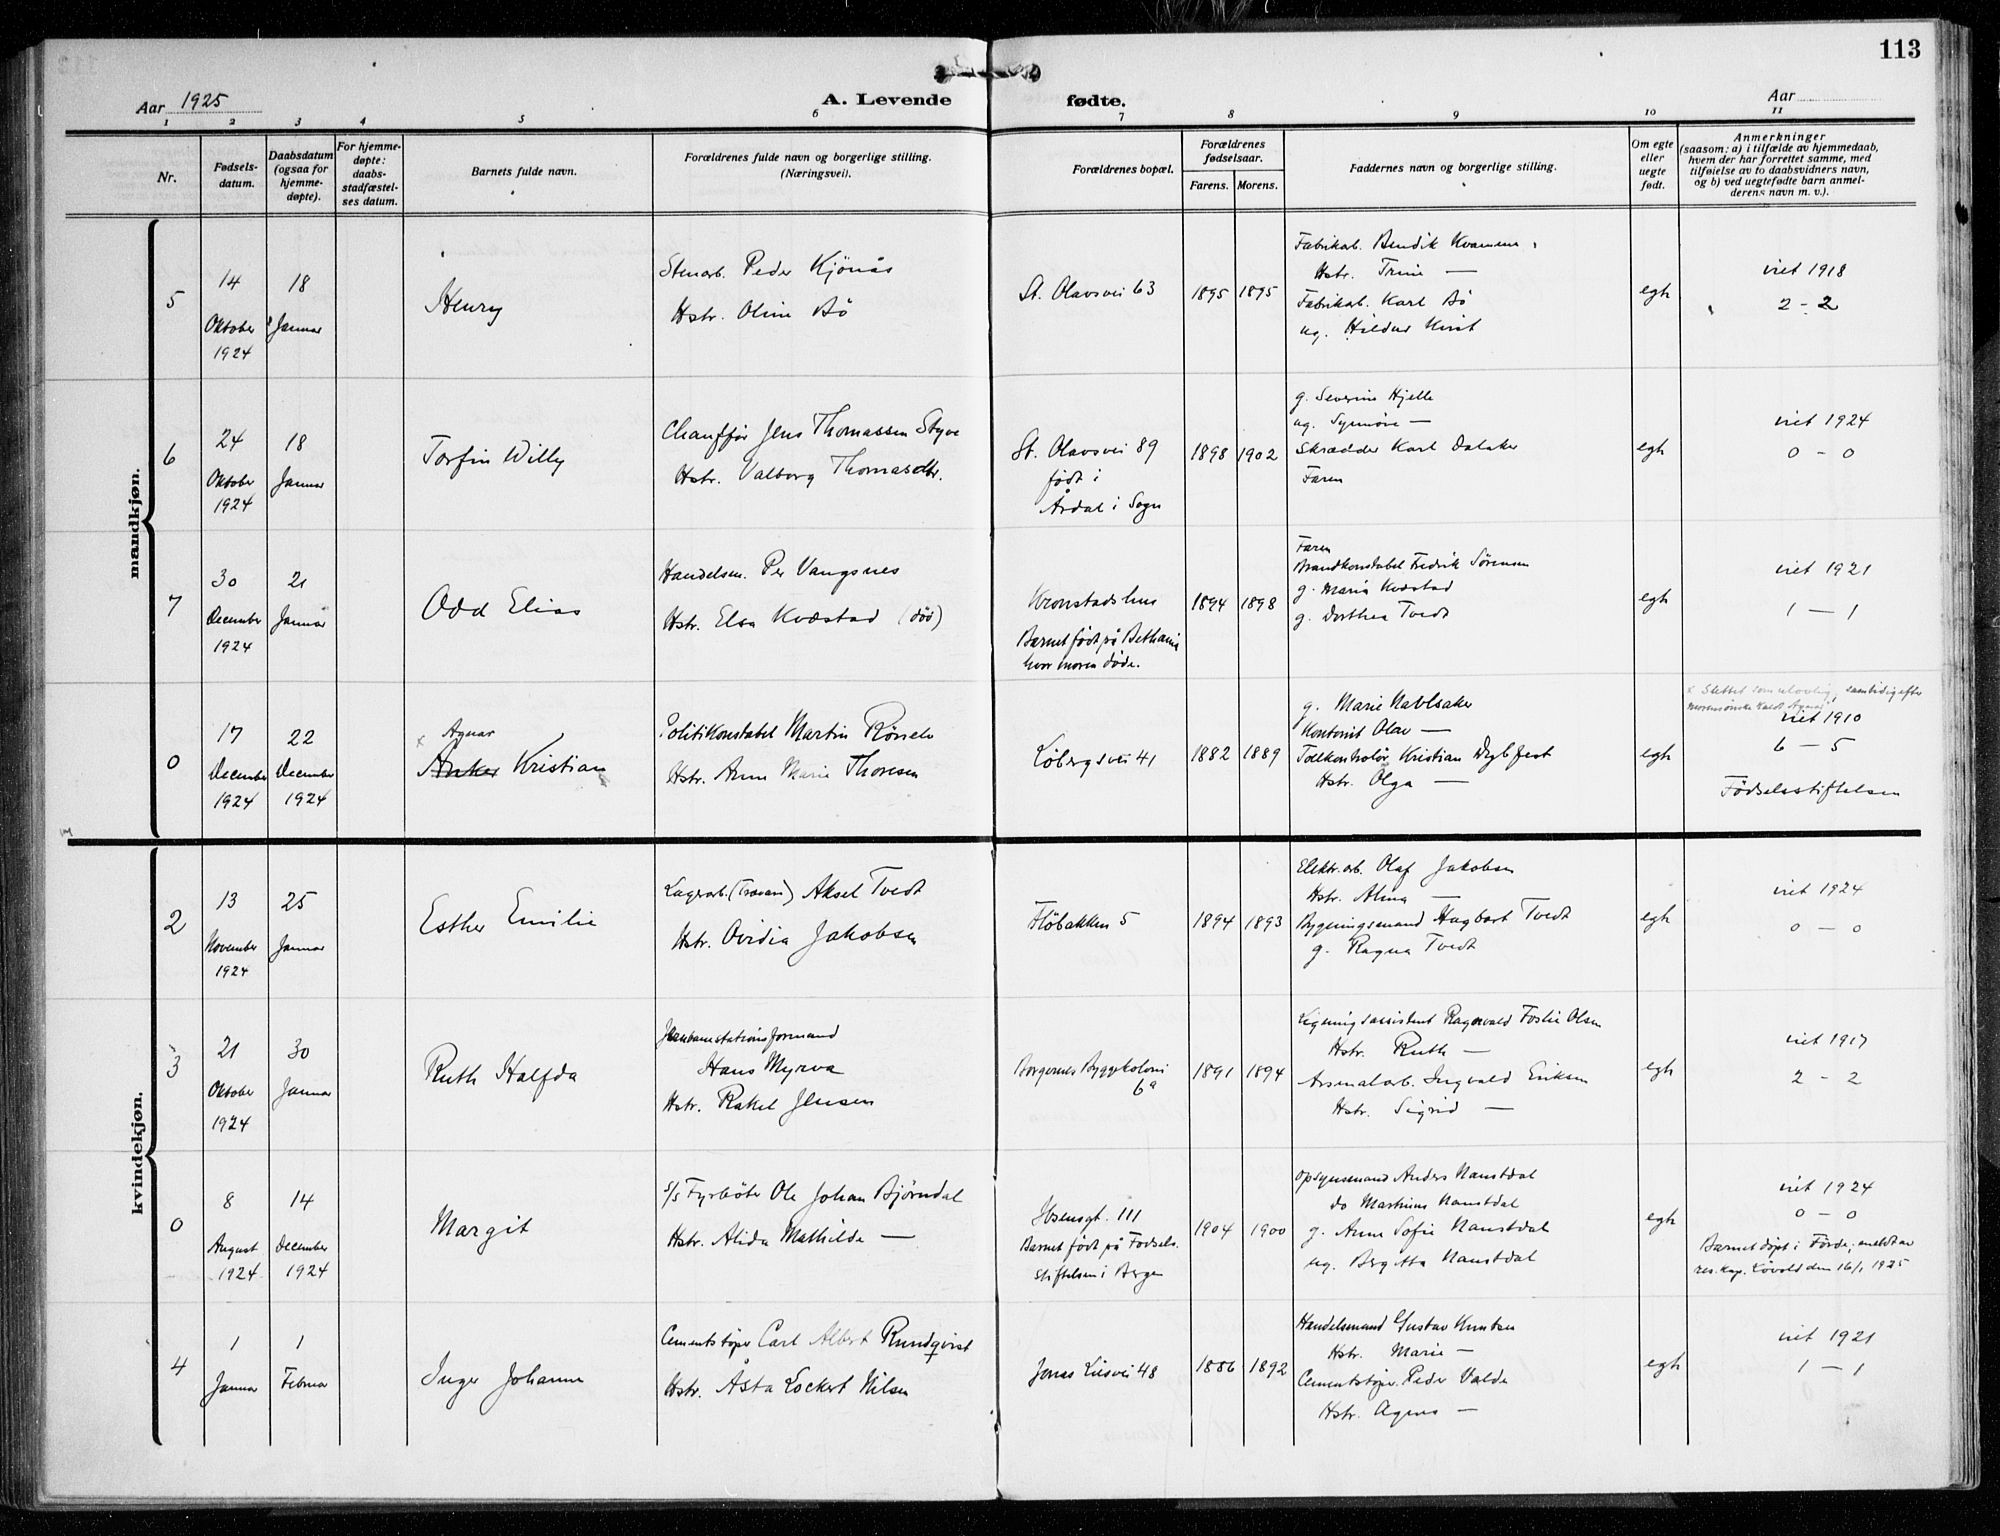 113
Aar 1925
A. Levende fødte.
Aar
1 2 3 4 5 6 7 8 9 10 11
Nr.
Fødsels-
datum.
Daabsdatum
(ogsaa for
hjemme-
døpte).
For hjemme-
døpte:
daabs-
stadfæstel-
ses datum.
Barnets fulde navn.
Forældrenes fulde navn og borgerlige stilling.
(Næringsvei).
Forældrenes bopæl.
Forældrenes
fødselsaar.
Farens. Morens.
Faddernes navn og borgerlige stilling.
Om egte
eller
uegte
født.
Anmerkninger
(saasom: a) i tilfælde av hjemmedaab,
hvem der har forrettet samme, med
tilføielse av to daabsvidners navn,
og b) ved uegtefødte barn anmel-
derens navn m. v.).
mandkjøn.
5
14
Oktober
1924
18
Januar
Henry
Stenarb. Peder Kjönås
Hstr. Oline Bö
St. Olavsvei 63
1895 1895
Fabrikarb. Bendik Kvamme
Hstr. Trine —
Fabrikarb. Karl Bö
ug. Hildur
egte
viet 1918
2 - 2
6
24
Oktober
1924
18
Januar
Torfin Willy
Chauffør Jens Thomassen Styve
Hstr. Valborg Thomasdtr.
St. Olavsvei 89
født i
Årdal i Sogn
1898 1902
g. Severine Hjelle
ug. Synnöve —
Skrædder Karl Dalaker
Faren
egte
viet 1924
0 - 0
7
30
December
1924
21
Januar
Odd Elias
Handelsm. Per Vangsnes
Hstr. Elsa Kvæstad (död)
Kronstadshus
Barnet født på Bethania
hvor moren døde.
1894 1898
Faren
Brandkonstabel Fredrik Sørensen
g. Maria Kvæstad
g. Dorthea Tvedt
egte
viet 1921
1 - 1
0
17
December
1924
22
December
1924
x Agnar
Anker Kristian
Politikonstabel Martin
Hstr. Anne Marie Thoresen
Løbergsvei 41
1882 1889
g. Marie Navlsaker
Kontorist Olav —
Toldkontrolør Kristian Dybfest
Hstr. Olga —
egte
x Slettet som ulovlig, samtidig efter
viet 1910
6 - 5
Fødselsstiftelsen
kvindekjøn.
2
13
November
1924
25
Januar
Esther Emilie
Lagerarb. (Travare) Aksel Tvedt
Hstr. Ovidia Jakobsen
Fløbakken 5
1894 1893
Elektr.arb. Olaf Jakobsen
Hstr. Alma —
Bygningsmand Hagbart Tvedt
g. Ragna Tvedt
egte
viet 1924
0 - 0
3
21
Oktober
1924
30
Januar
Ruth Halfda
Jernbanestationsformand
Hans Myrva
Hstr. Rakel Jensen
Borgernes Byggekoloni
6a
1891 1894
Ligningsassistent Ragnvald Foslie Olsen
Hstr. Ruth —
Arsenalarb. Ingvald Eriksen
Hstr. Sigrid —
egte
viet 1917
2 - 2
0
8
August
1924
14
December
1924
Margit
s/s Fyrbøter Ole Johan Bjørndal
Hstr. Alida Mathilde —
Ibsensgt. 111
Barnet født på Fødsels-
stiftelsen i Bergen
1904 1900
Opsynsmand Anders Namstdal
do Martinus Namstdal
g. Anne Sofie Namstdal
ug. Bergitta Namstdal
egte
viet 1924
0 - 0
Barnet døpt i Førde, meldt av
res. kap. Løvold den 16/1 1925
4
1
Januar
1
Februar
Inger Johanne
Cementstøper Carl Albert Rundqvist
Hstr. Åsta Lockert Nilsen
Jonas Liesvei 48
1886 1892
Handelsmand Gustav Knutsen
Hstr. Marie —
Cementstøper Peder Valde
Hstr. Agnes —
egte
viet 1921
1 - 1